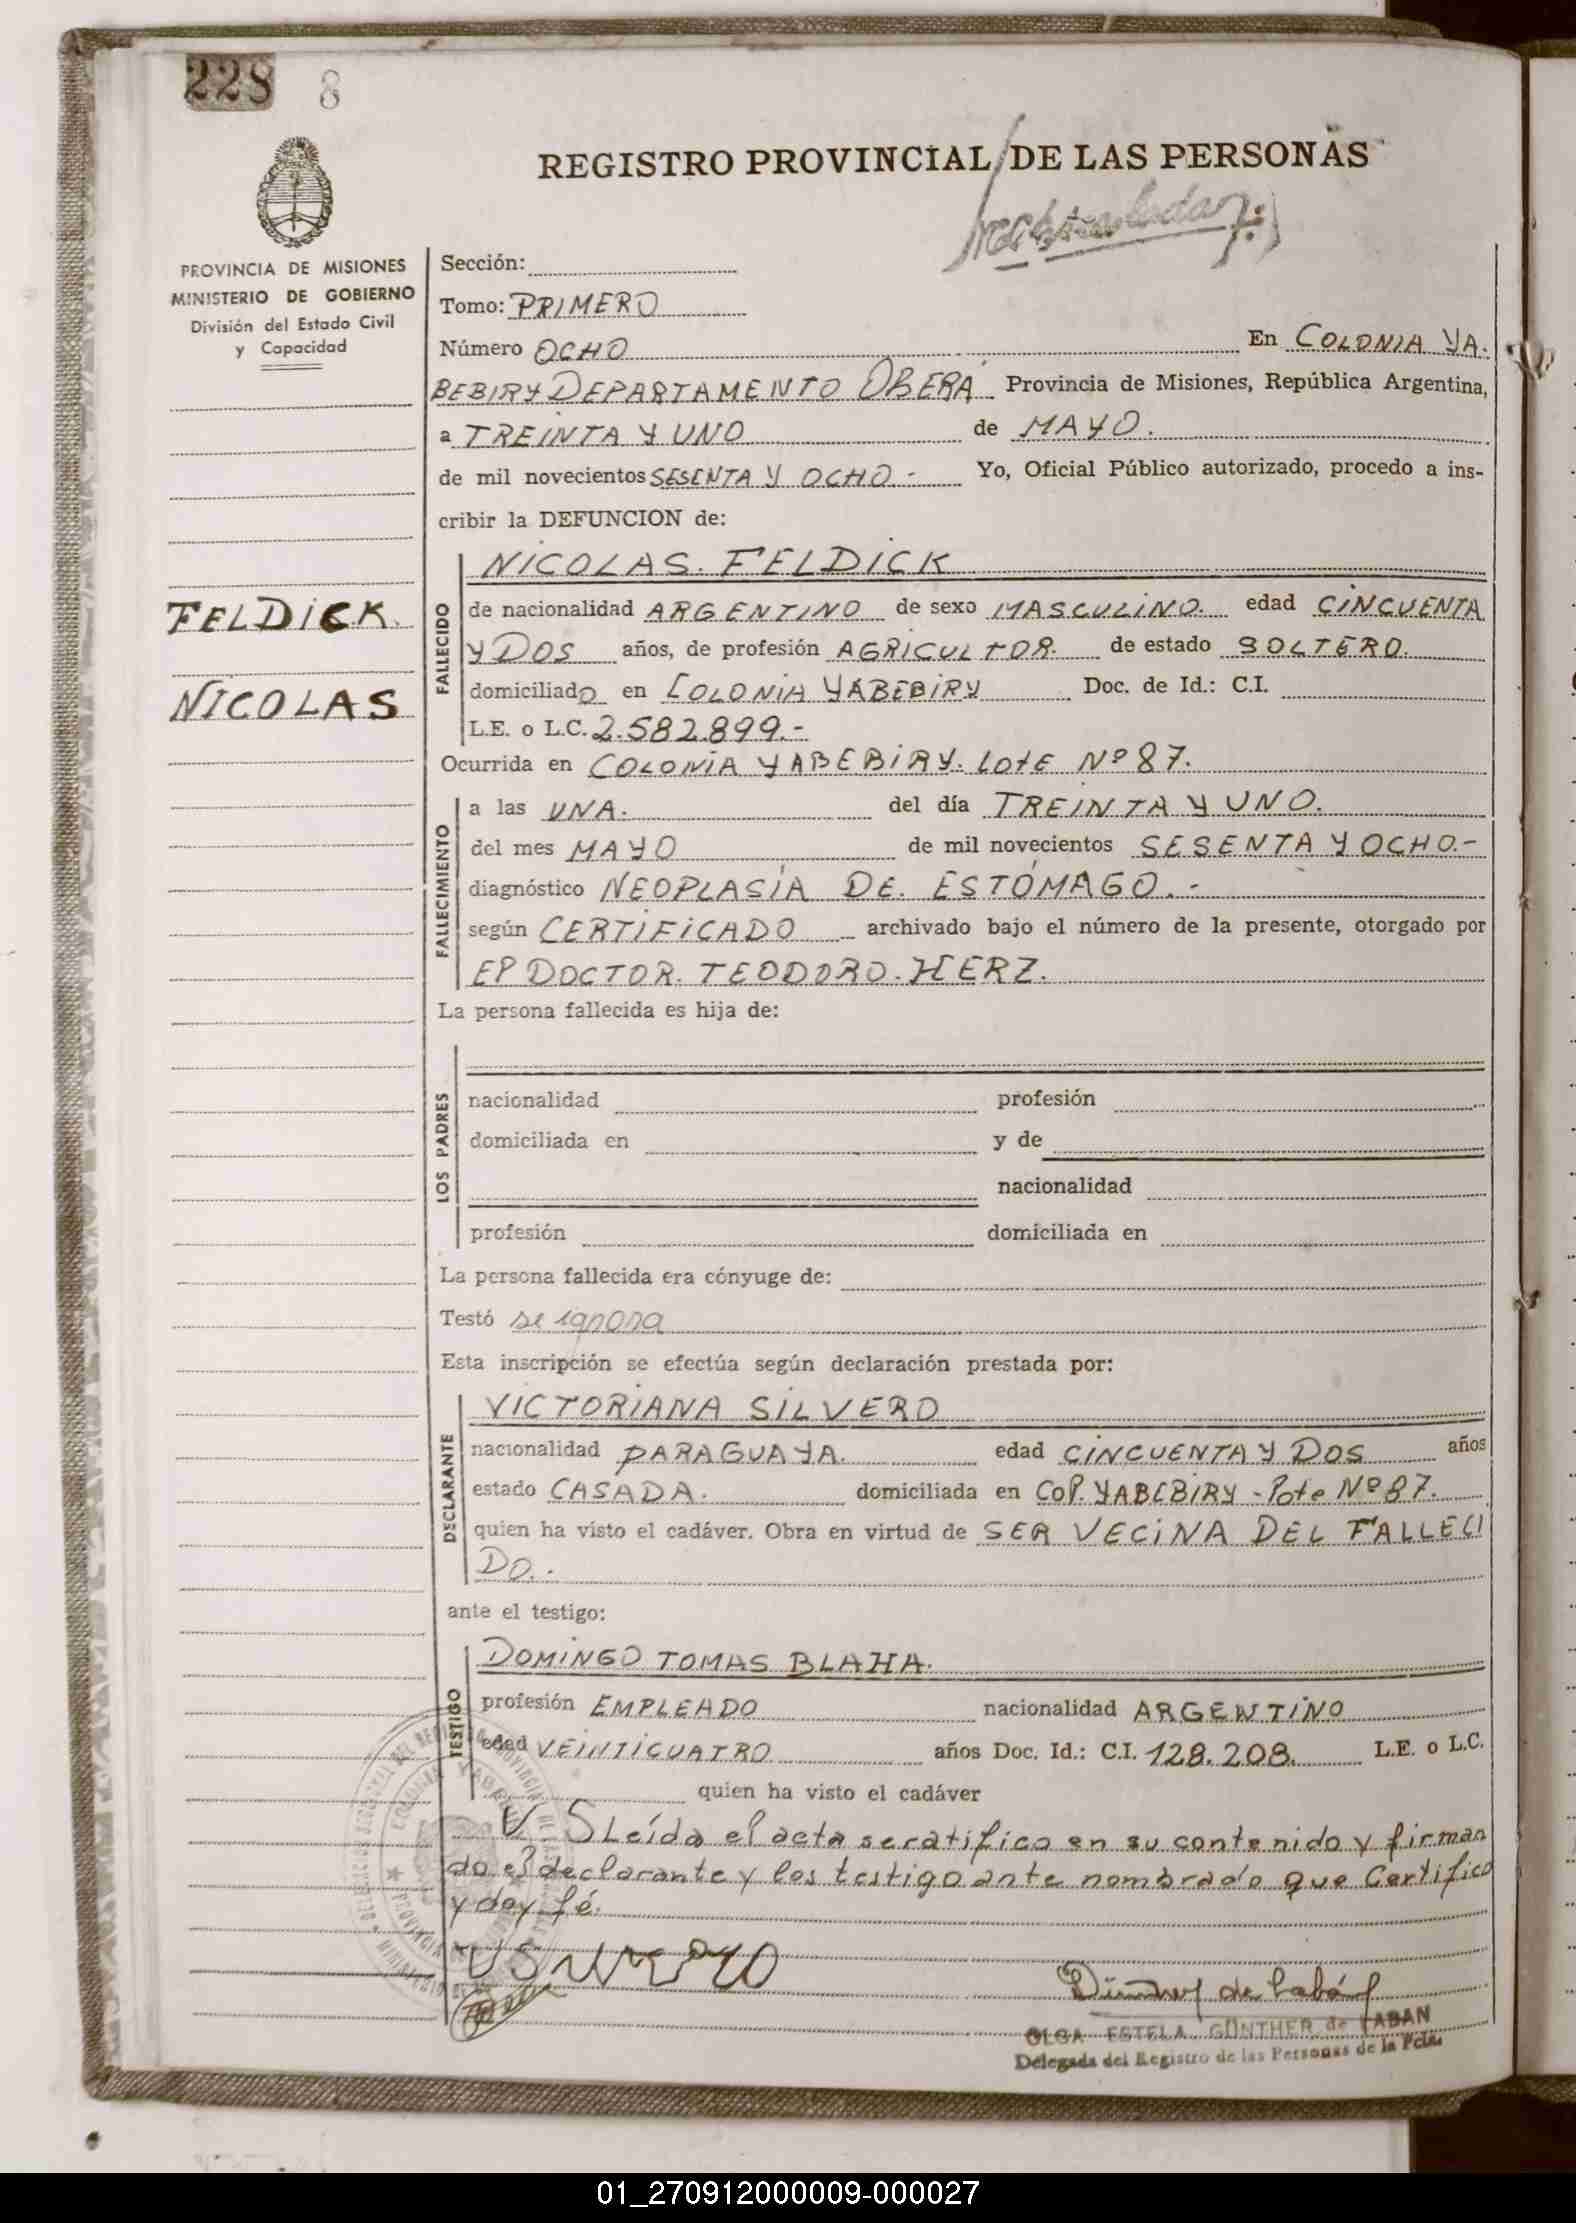 228 8
REGISTRO PROVINCIAL DE LAS PERSONAS
PROVINCIA DE MISIONES
MINISTERIO DE GOBIERNO
División del Estado Civil
y Capacidad
Sección:
Tomo: PRIMERO
Número OCHO En COLONIA YA.
BEBIRY DEPARTAMENTO OBERÁ Provincia de Misiones, República Argentina,
a TREINTA Y UNO de MAYO.
de mil novecientos SESENTA Y OCHO.- Yo, Oficial Público autorizado, procedo a ins-
cribir la DEFUNCION de:
FELDICK
NICOLAS
FALLECIDO
NICOLAS. FELDICK
de nacionalidad ARGENTINO de sexo MASCULINO. edad CINCUENTA
Y DOS años, de profesión AGRICULTOR. de estado SOLTERO.
domiciliado en COLONIA YABEBIRY Doc. de Id.: C.I.
L.E. o L.C. 2.582.899.-
Ocurrida en COLONIA YABEBIRY. LOTE Nº 87.
FALLECIMIENTO
a las UNA. del día TREINTA Y UNO.
del mes MAYO de mil novecientos SESENTA Y OCHO.-
diagnóstico NEOPLASIA DE. ESTÓMAGO.-
según CERTIFICADO archivado bajo el número de la presente, otorgado por
El DOCTOR. TEODORO. HERZ.
La persona fallecida es hija de:
LOS PADRES
nacionalidad profesión
domiciliada en y de
nacionalidad
profesión domiciliada en
La persona fallecida era cónyuge de:
Testó se ignora
Esta inscripción se efectúa según declaración prestada por:
DECLARANTE
VICTORIANA SILVERO
nacionalidad PARAGUAYA. edad CINCUENTA Y DOS años
estado CASADA. domiciliada en Col. YABEBIRY - lote Nº 87.
quien ha visto el cadáver. Obra en virtud de SER VECINA DEL FALLECI
DO.-
ante el testigo:
TESTIGO
DOMINGO TOMAS BLAHA.
profesión EMPLEADO nacionalidad ARGENTINO
edad VEINTICUATRO años Doc. Id.: C.I. 128.208. L.E. o L.C.
quien ha visto el cadáver
Leída el acta se ratifica en su contenido y firman
do el declarante y los testigo ante nombrado que Certifico
y doy fé.
OLGA ESTELA GÜNTHER de LABAN
Delegada del Registro de las Personas de la Pcia.
01_270912000009-000027